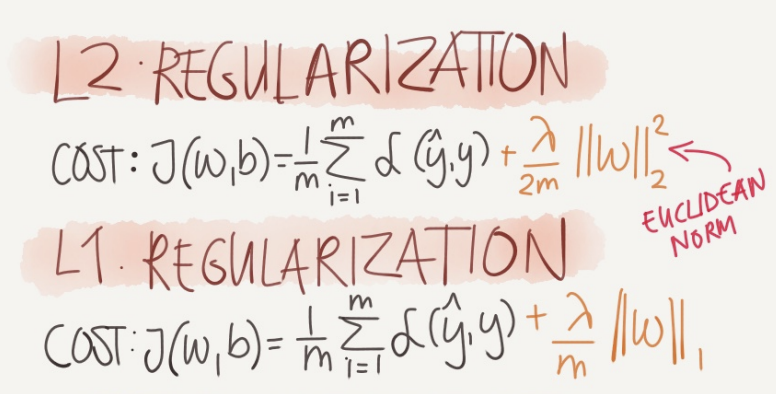 L2 REGULARIZATION
COST: J(w,b) = 1/m Σ_{i=1}^{m} L(ŷ,y) + λ/2m ||w||₂²
EUCLIDEAN
NORM
L1. REGULARIZATION
COST: J(w,b) = 1/m Σ_{i=1}^{m} L(ŷ,y) + λ/m ||w||₁